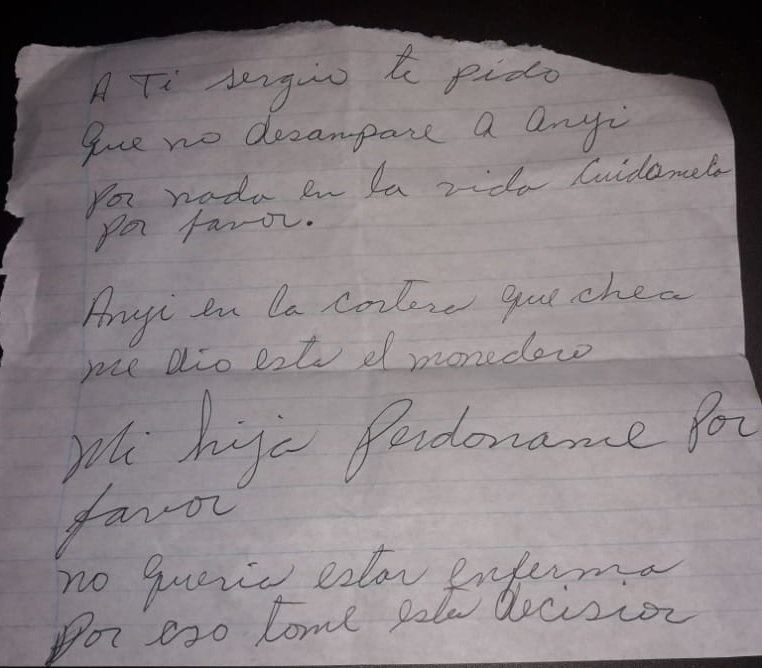 A Ti sergio te pido
que no desampare a Anyi
por nada en la vida Cuidamela
por favor.
Anyi en la cartera que chea
me dio esta el monedero
Mi hija perdoname por
favor
no queria estar enferma
por eso tome esta decision